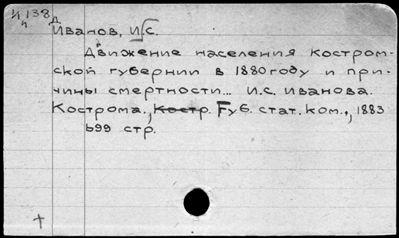 1/138
4 д
Иванов, И.С.
Движение населения Костром-
ской губернии в 1880 году и при-
чины смертности... И.С. Иванова.
Кострома., Костр. Губ. стат. ком., 1883
99 стр.